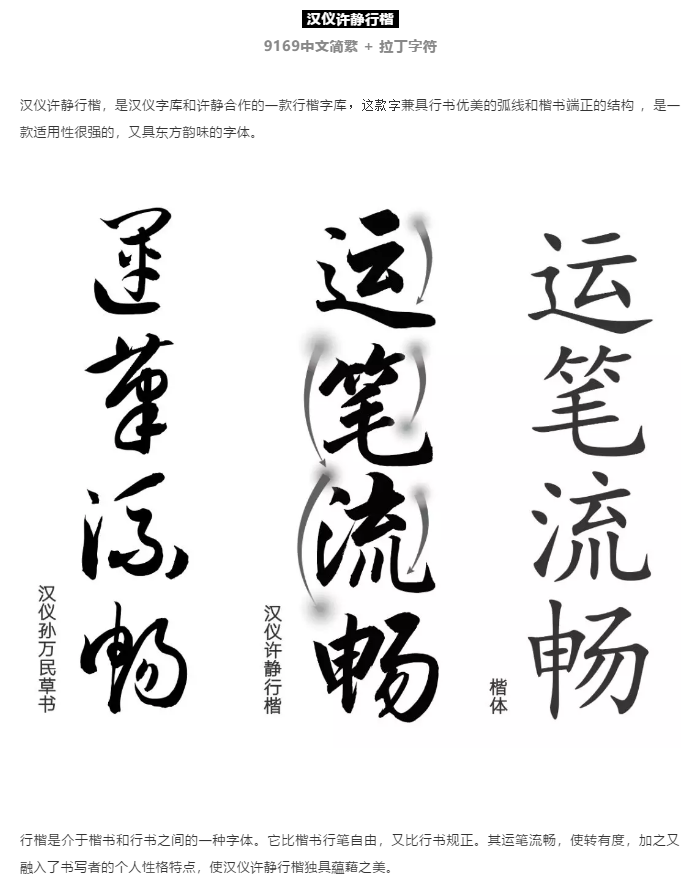 汉仪许静行楷
9169中文简繁 + 拉丁字符
汉仪许静行楷，是汉仪字库和许静合作的一款行楷字库，这款字兼具行书优美的弧线和楷书端正的结构 ，是一
款适用性很强的，又具东方韵味的字体。
運筆流暢
汉仪孙万民草书
运笔流畅
汉仪许静行楷
运笔流畅
楷体
行楷是介于楷书和行书之间的一种字体。它比楷书行笔自由，又比行书规正。其运笔流畅，使转有度，加之又
融入了书写者的个人性格特点，使汉仪许静行楷独具蕴藉之美。